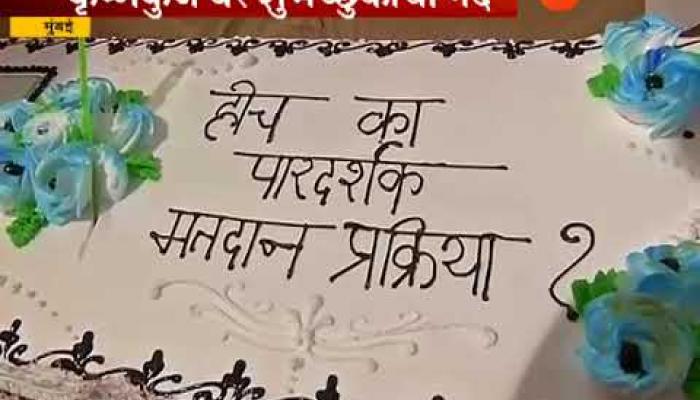 मुंबई
हीच का
पारदर्शक
मतदान प्रक्रिया ?